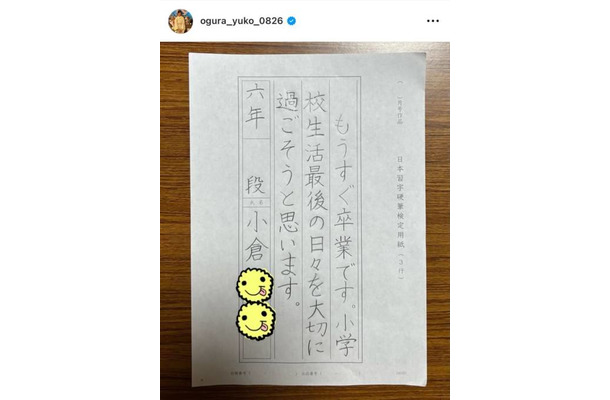 ogura_yuko_0826
日本習字硬筆検定用紙(3行)
もうすぐ卒業です。小学
校生活最後の日々を大切に
過ごそうと思います。
六年
段
氏名
小倉